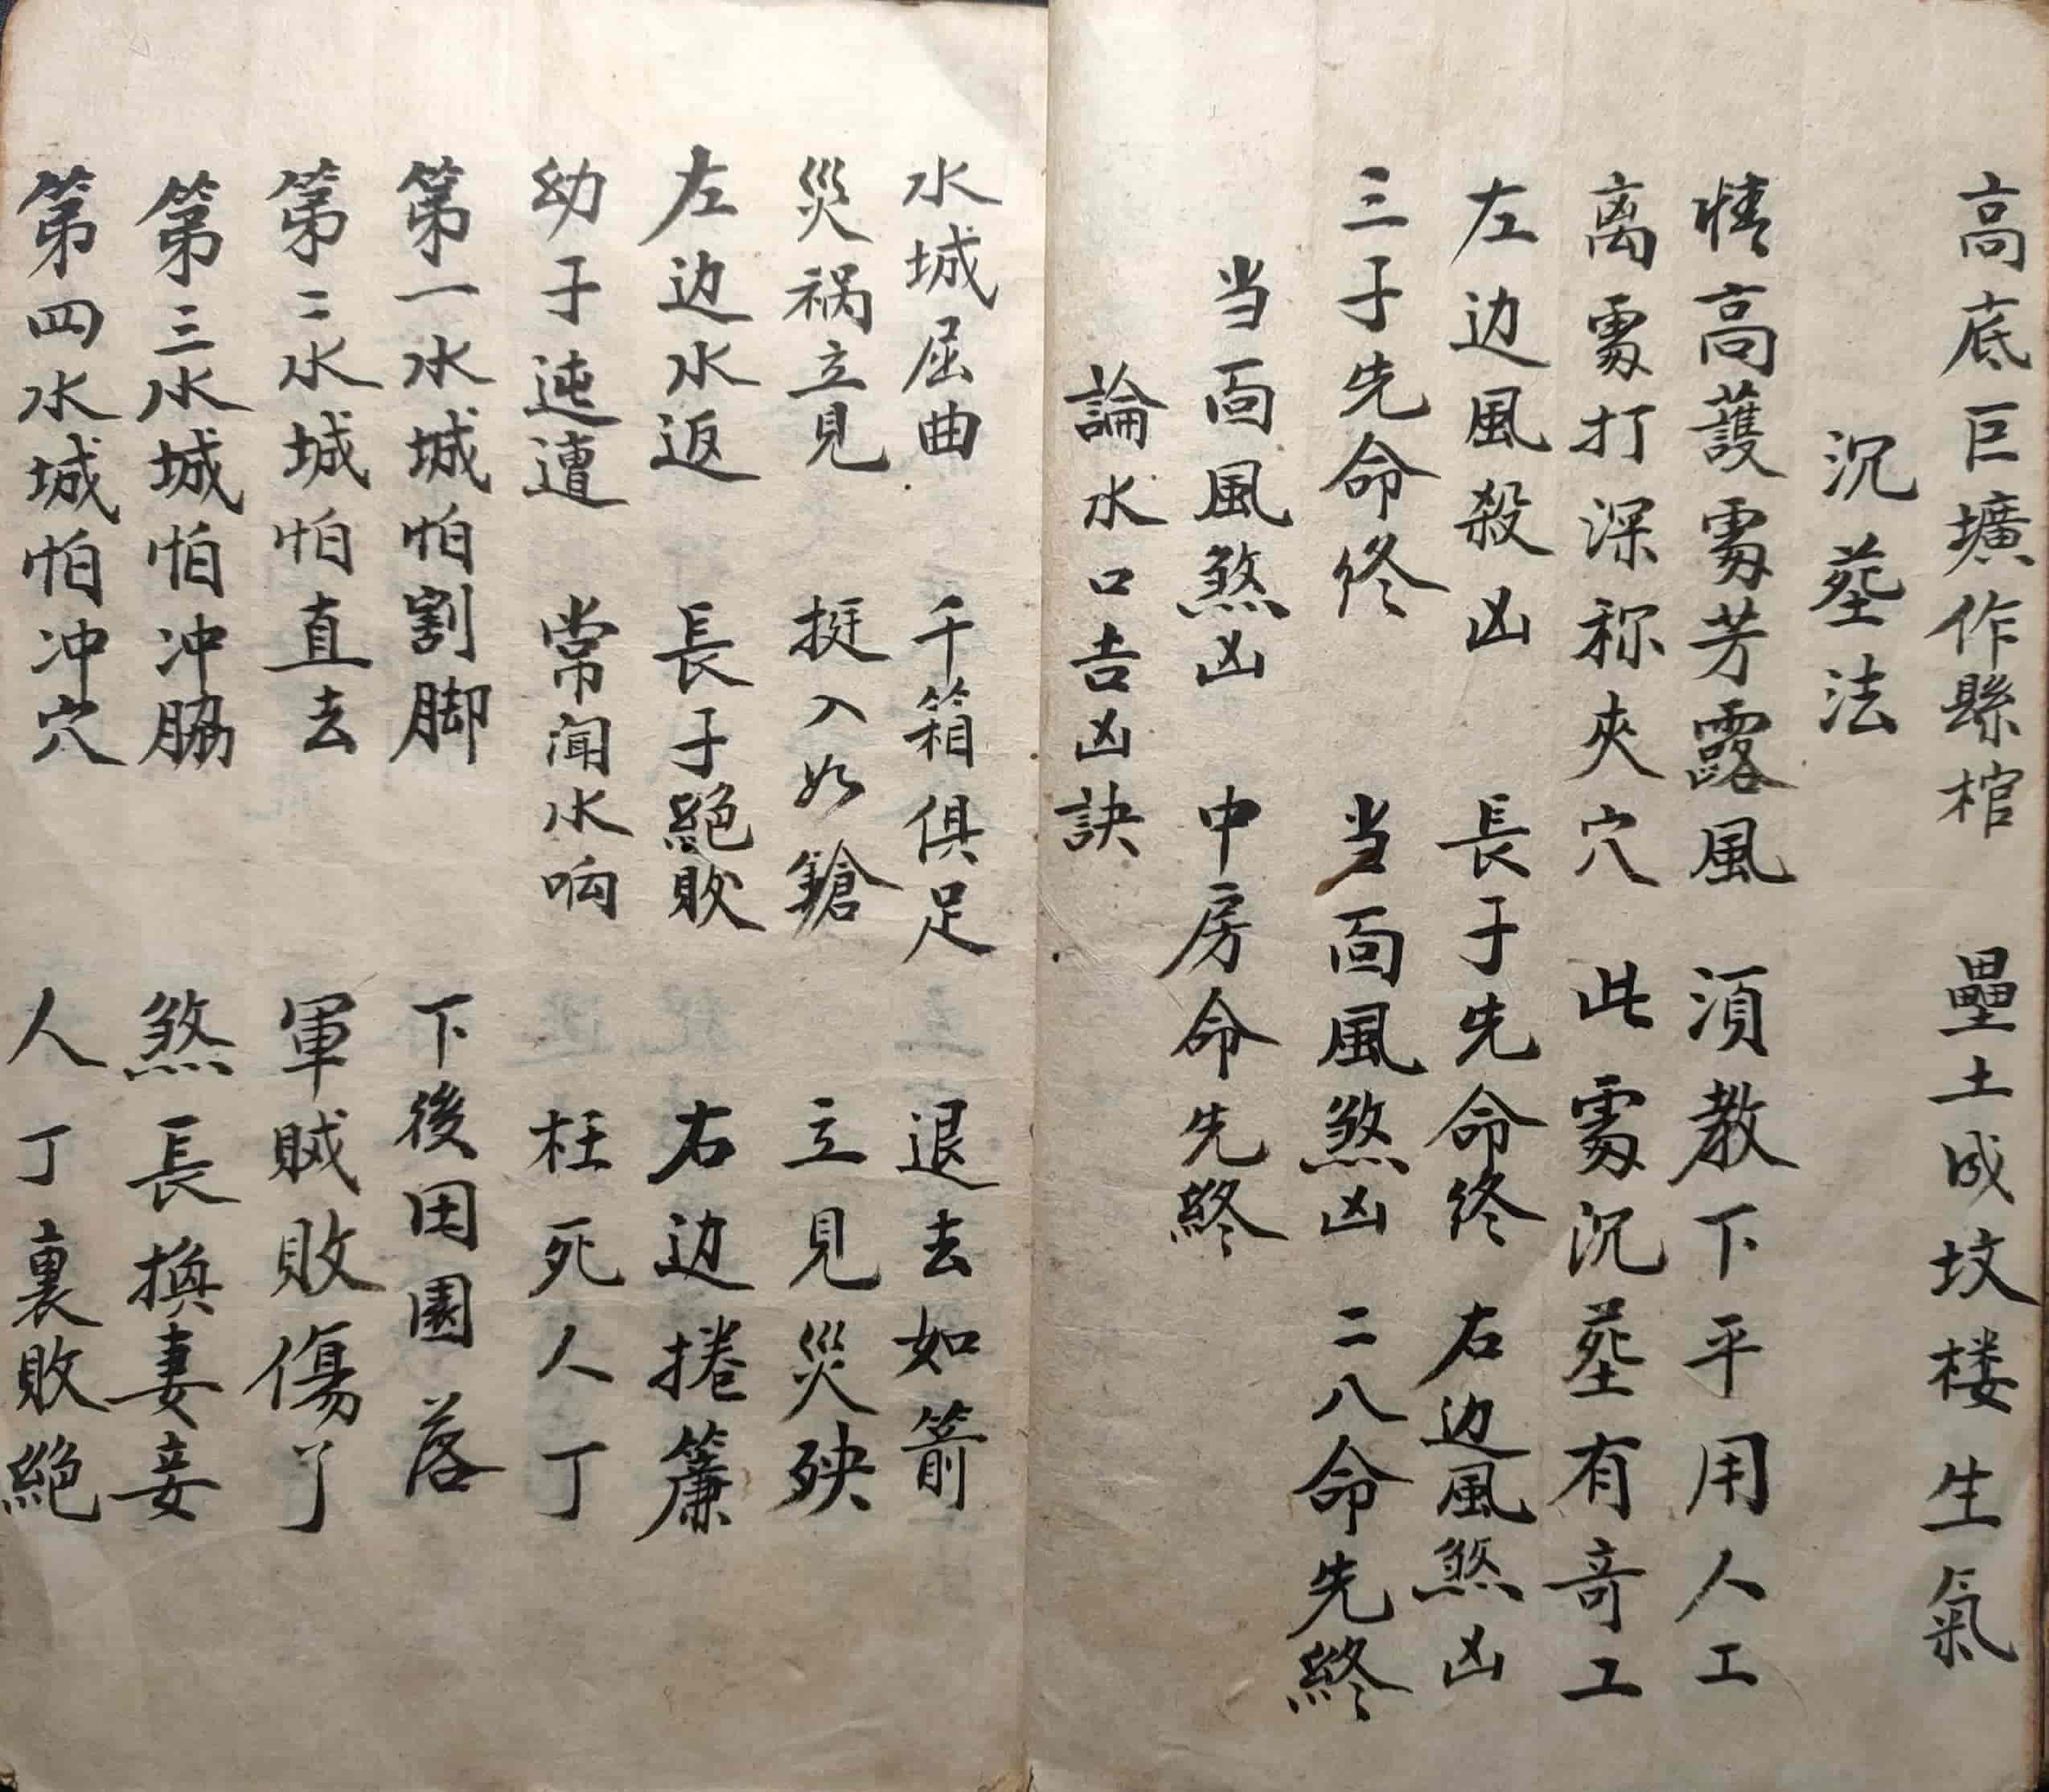 高底巨壙作縣棺 壘土成坟楼生氣
沉塟法
情高護䖏芳露風 湏教下平用人工
离䖏打深称夾穴 此䖏沉塟有竒工
左边風殺凶 長子先命终 右边風煞凶
三子先命终 当面風煞凶 二八命先終
当面風煞凶 中房命先終
論水口吉凶訣
水城屈曲 千箱俱足 退去如箭
災祸立見 挺入如鎗 立見災殃
左边水返 長子絕敗 右边捲簾
幼子迍邅 常闻水响 枉死人丁
第一水城怕割脚 下後田園落
第二水城怕直去 軍贼敗傷了
第三水城怕冲脇 煞長換妻妾
第四水城怕冲穴 人丁裏敗絕